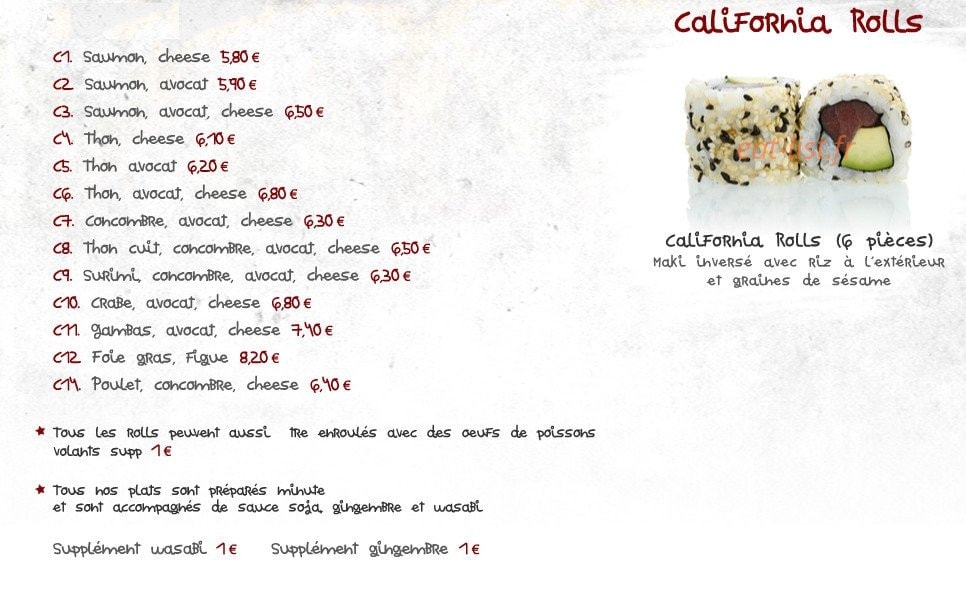 California Rolls
C1. Saumon, cheese 5,80 €
C2 Saumon, avocat 5,90 €
C3. Saumon, avocat, cheese 6,50 €
C4. Thon, cheese 6,10 €
C5. Thon avocat 6,20 €
C6. Thon, avocat, cheese 6,80 €
C7. Concombre, avocat, cheese 6,30 €
C8. Thon cuit, concombre, avocat, cheese 6,50 €
C9. Surimi, concombre, avocat, cheese 6,30 €
C10. Crabe, avocat, cheese 6,80 €
C11. Gambas, avocat, cheese 7,40 €
C12 Foie gras, Figue 8,20 €
C14. Poulet, concombre, cheese 6,40 €
eat-list.fr
California Rolls (6 pièces)
Maki inversé avec riz à l'extérieur
et graines de sésame
Tous les rolls peuvent aussi tre enroulés avec des oeufs de poissons
volants supp 1 €
Tous nos plats sont préparés minute
et sont accompagnés de sauce soja, gingembre et wasabi
Supplément wasabi 1 € Supplément gingembre 1 €